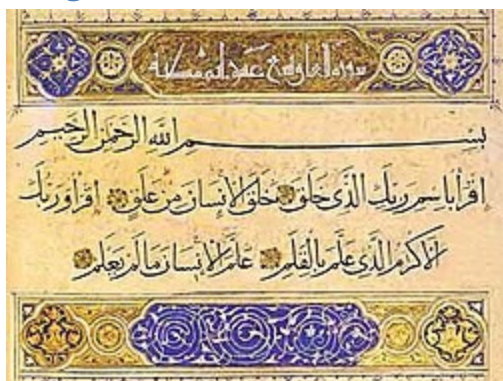 سورة العلق تسع عشر آية مكية
بسم الله الرحمن الرحيم
اقرأ باسم ربك الذي خلق خلق الإنسان من علق اقرأ وربك
الأكرم الذي علم بالقلم علم الإنسان ما لم يعلم